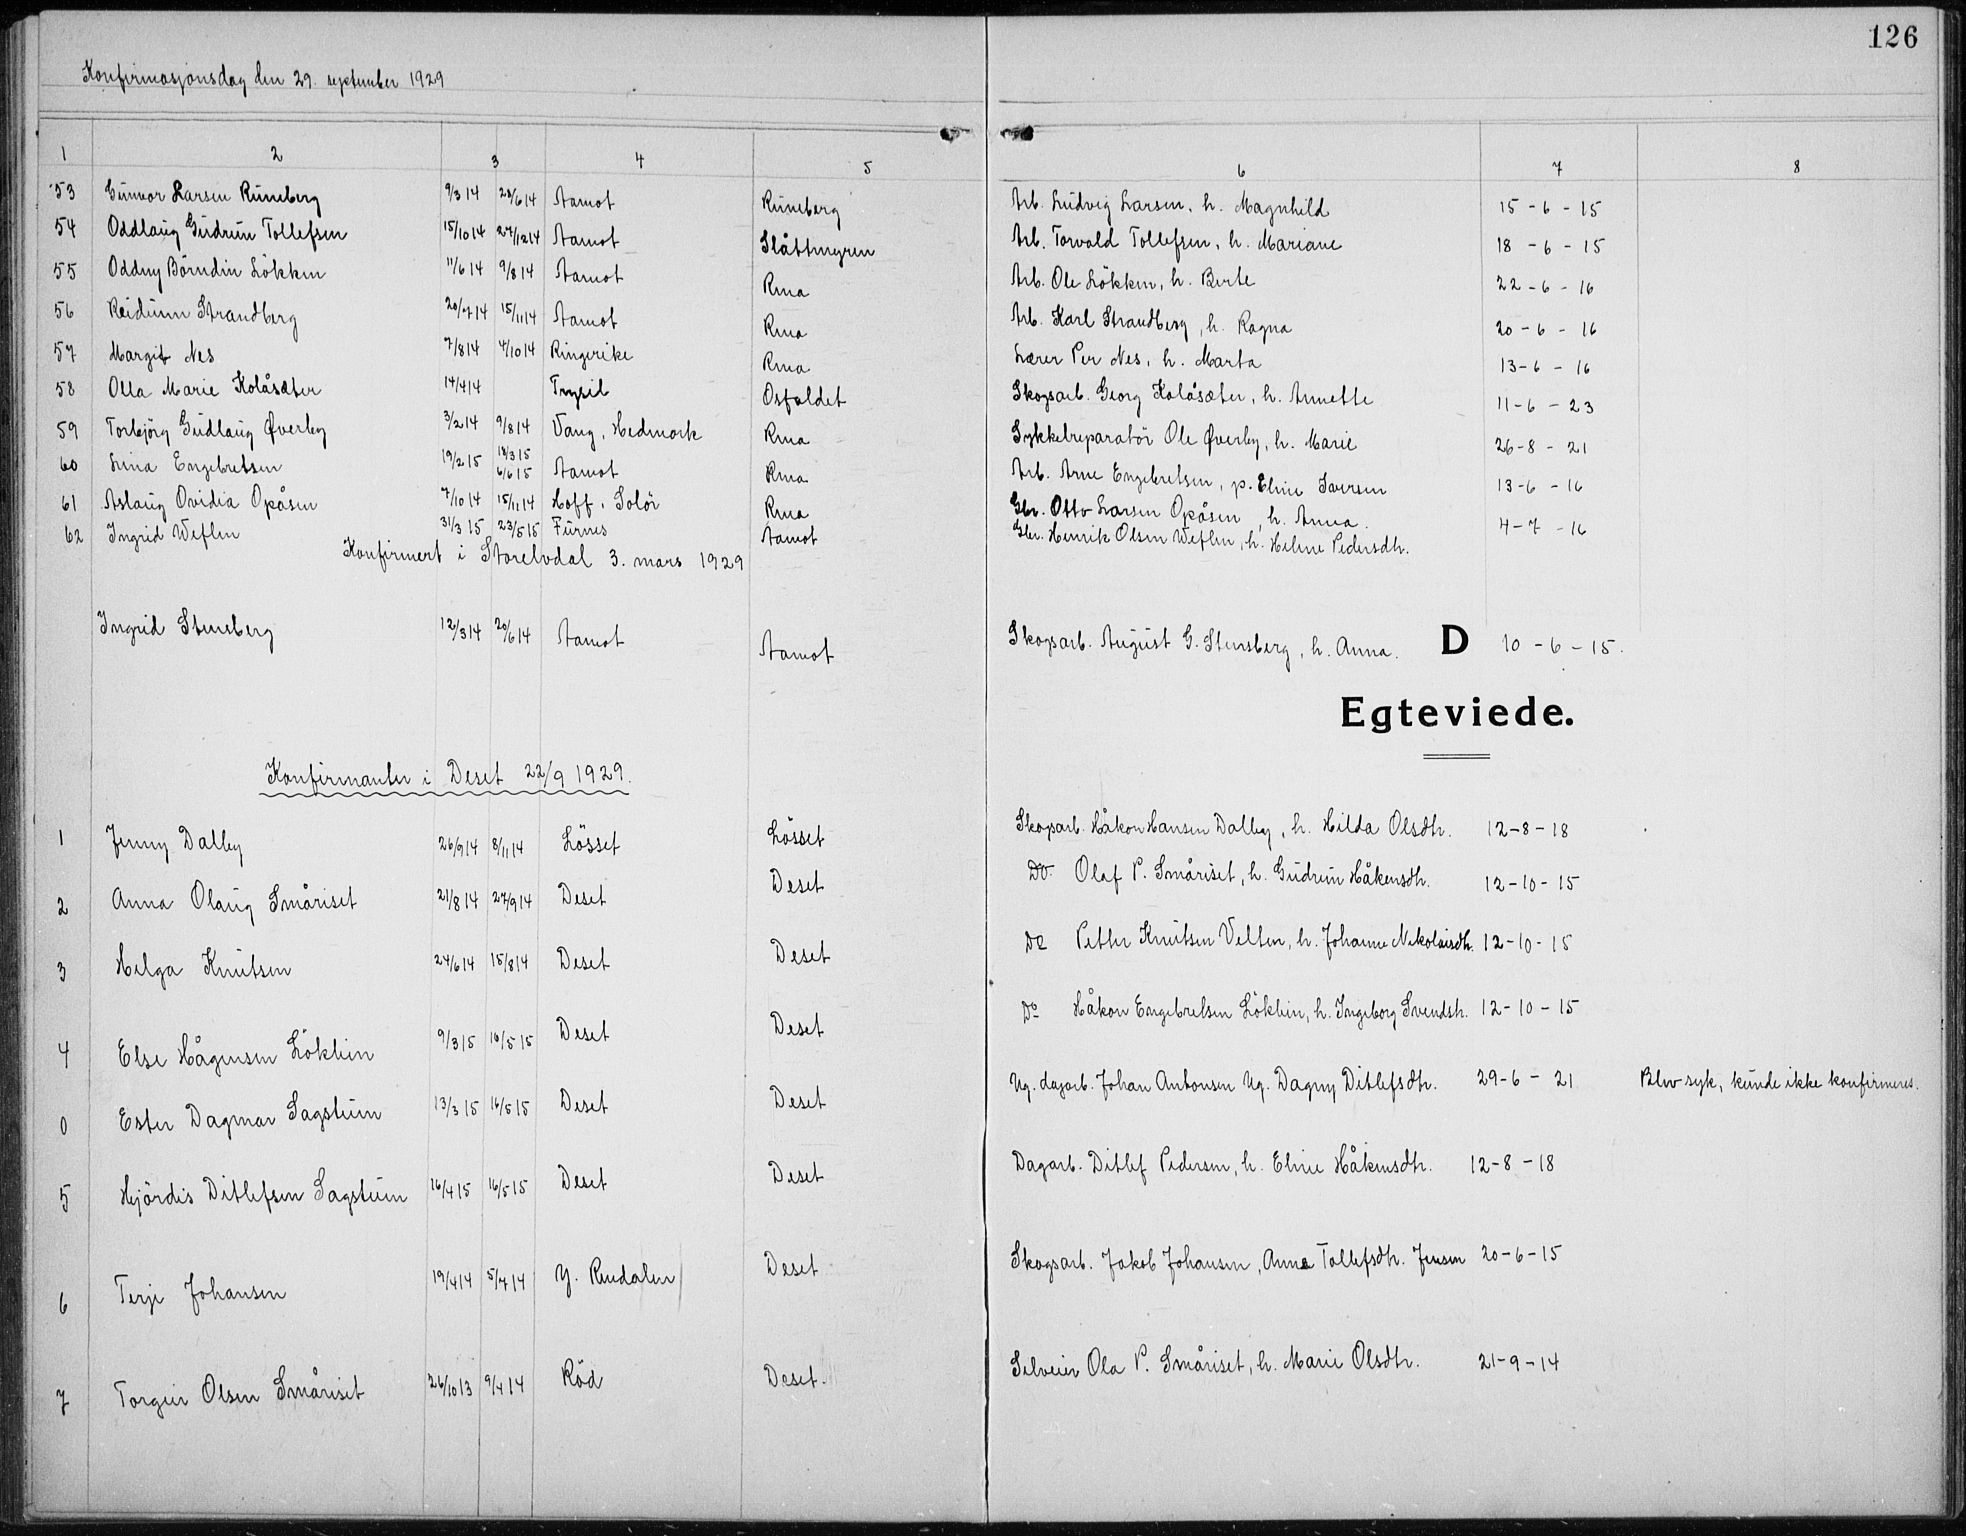 126
Konfirmasjonsdag den 29. september 1929
1 2 3 4 5 6 7 8
53 Gunvor Larsen Runeberg 9/3 14 28/6 14 Aamot Runeberg Arb. Ludvig Larsen, h. Magnhild 15-6-15
54 Oddlaug Gudrun Tollefsen 15/10 14 27/12 14 Aamot Slåttmyren Arb. Torvald Tollefsen, h. Mariane 18-6-15
55 Oddny Börndin Lökken 11/6 14 9/8 14 Aamot Rena Arb. Ole Lökken, h. Berte 22-6-16
56 Reidunn Strandberg 20/7 14 15/11 14 Aamot Rena Arb. Karl Strandberg, h. Ragna 20-6-16
57 Margit Nes 7/8 14 4/10 14 Ringerike Rena Lærer Per Nes, h. Marta 13-6-16
58 Olla Marie Kolåsæter 14/4 14 Trysil Osfaldet Skogsarb. Georg Kolåsæter, h. Annette 11-6-23
59 Torbjörg Gudlaug Øverby 3/2 14 9/8 14 Vang, Hedmark Rena Sykkelreparatör Ole Øverby, h. Marie 26-8-21
60 Lina Engebretsen 19/2 15 18/3 15 6/6 15 Aamot Rena Arb. Arne Engebretsen, p. Eline Iversen 13-6-16
61 Aslaug Ovidia Opåsen 7/10 14 15/11 14 Hoff, Solör Rena Gbr. Otto Larsen Opåsen, h. Anna. 4-7-16
62 Ingrid Weflen 31/3 15 23/5 15 Furnes Aamot Gbr. Henrik Olsen Weflen, h. Helene Pedersdtr.
Konfirmert i Storelvdal 3. mars 1929
Ingrid Stensberg 12/3 14 20/6 14 Aamot Aamot Skogsarb. August G. Stensberg, h. Anna. D 10-6-15.
Egteviede.
Konfirmanter i Deset 22/9 1929.
1 Jenny Dalby 26/9 14 8/11 14 Lösset Lösset Skogsarb. Håkon Hansen Dalby, h. Hilda Olsdtr. 12-8-18
2 Anna Olaug Småriset 21/8 14 27/9 14 Deset Deset Do. Olaf P. Småriset, h. Gudrun Håkensdtr. 12-10-15
3 Helga Knutsen 24/6 14 15/8 14 Deset Deset Do Petter Knutsen Velten, h. Johanne Nikolaisdtr. 12-10-15
4 Else Hågensen Löklien 9/3 15 16/5 15 Deset Deset Do Håkon Engebretsen Löklien, h. Ingeborg Svendstr. 12-10-15
0 Ester Dagmar Sagstuen 13/3 15 16/5 15 Deset Deset Ug. dagarb. Johan Antonsen Ug. Dagny Ditlefsdtr. 29-6-21 Blev syk, kunde ikke konfirmeres.
5 Hjördis Ditlefsen Sagstuen 16/4 15 16/5 15 Deset Deset Dagarb. Ditlef Pedersen, h. Eline Håkensdtr. 12-8-18
6 Terje Johansen 19/4 14 5/7 14 Y. Rendalen Deset Skogsarb. Jakob Johansen, Anna Tollefsdtr. Jensen 20-6-15
7 Torgeir Olsen Småriset 26/10 13 9/4 14 Röd Deset. Selveier Ola P. Småriset, h. Marie Olsdtr. 21-9-14